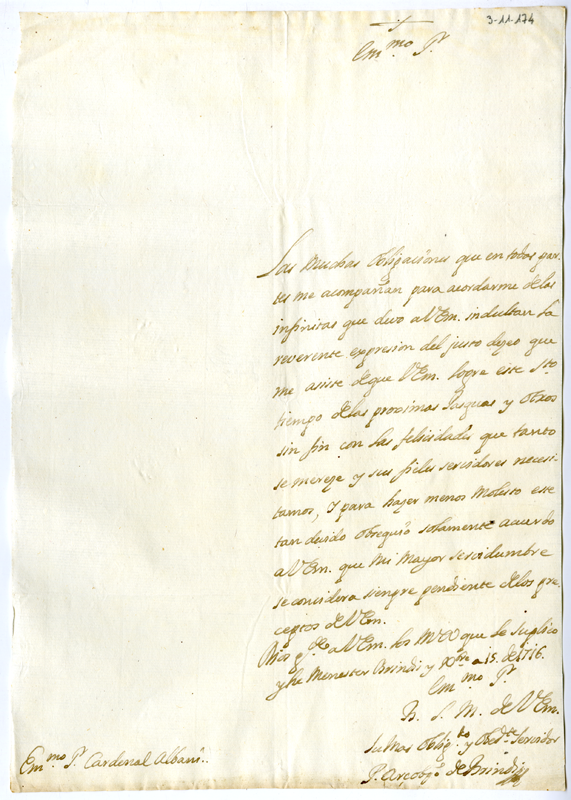 3-11-174
Em.mo S.r
Las muchas obligaciones que en todas par-
tes me acompañan para acordarme delas
infinitas que devo a VEm. indultan la
reverente expresion del justo deseo que
me asiste deque VEm. logre este Sto
tiempo delas proximas Pasquas y otros
sin fin con las felicidades que tanto
se mereze y sus fieles servidores necesi-
tamos, y para hazer menos molesto este
tan devido obsequio solamente acuerdo
a VEm. que mi mayor servidumbre
se considera siempre pendiente delos pre-
ceptos de VEm.
Dios g.de a VEm. los que le suplico
y he menester Brindis y X.bre a 15. de 1716.
Em.mo S.r
B. L. M. de VEm.
su mas oblig.do y obed.te servidor
Em.mo S.r Cardenal Albani.
P. Arçobp.o de Brindis